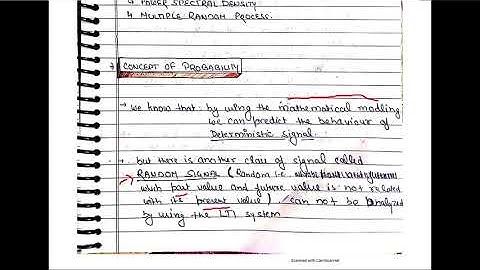 ↳ POWER SPECTRAL DENSITY
↳ MULTIPLE RANDOM PROCESS.
CONCEPT OF PROBABILITY
→ we know that: by using the mathematical modling
we can predict the behaviour of
Deterministic signal.
→ but there is another class of signal called
RANDOM SIGNAL (Random i.e.
which past value and future value is not related
with its present value) can not be analyzed
by using the LTI system
Scanned with CamScanner